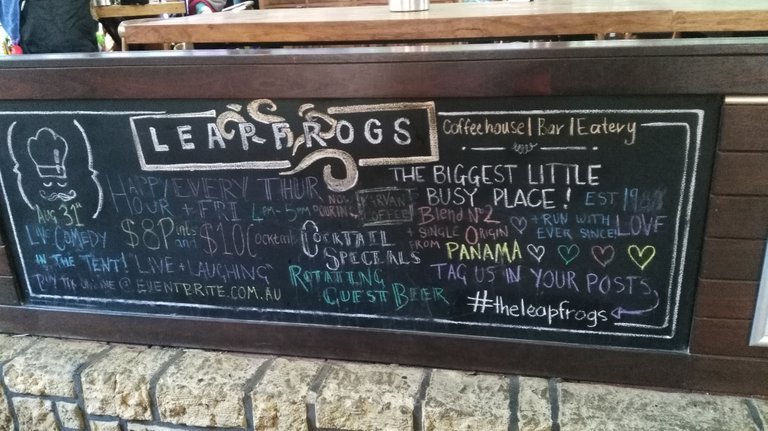 LEAPFROGS
Coffeehouse | Bar | Eatery
Aug 31st
Live Comedy
in the Tent! "Live + Laughing"
@ EVENTBRITE.COM.AU
Happy Every Thur
Hour + Fri 4pm-5pm
$8 Pints and $10 Cocktails
Now Pouring
Coffee
Blend No2
+ Single Origin
from PANAMA
Cocktail
Specials
Rotating
Guest Beer
THE BIGGEST LITTLE
BUSY PLACE! EST
+ RUN WITH LOVE
EVER SINCE!
TAG US IN YOUR POSTS
#theleapfrogs